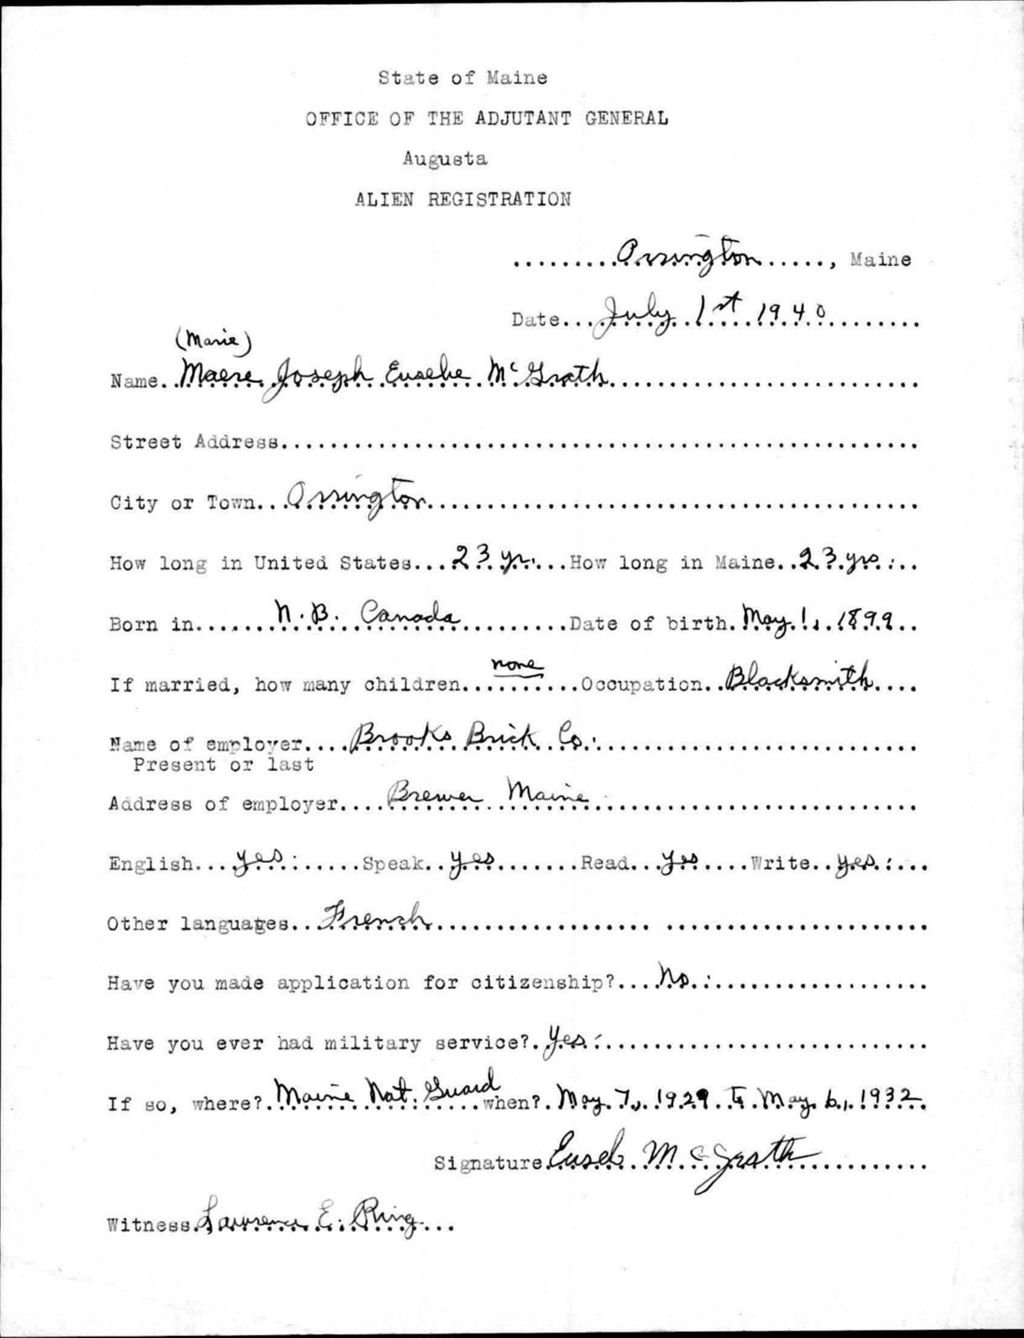 State of Maine
OFFICE OF THE ADJUTANT GENERAL
Augusta
ALIEN REGISTRATION
.........Orrington....., Maine
Date...July 1st 1940.........
(Marie)
Name..Maere Joseph Eusebe McGrath.........................
Street Address....................................................
City or Town...Orrington.........................................
How long in United States...23 yr....How long in Maine..23 yrs...
Born in.......N.B. Canada..........Date of birth.May 1, 1899..
If married, how many children..none....Occupation..Blacksmith....
Name of employer....Brooks Brick Co...........................
Present or last
Address of employer....Brewer Maine...........................
English...yes......Speak..yes.......Read...yes....Write..yes....
Other languages..French.................. ......................
Have you made application for citizenship?....No...................
Have you ever had military service?.Yes...........................
If so, where?.Maine Nat. Guard.....when?.May 7, 1929 To May 6, 1932
Signature.Euseb McGrath...........
Witness.Lawrence E. Ring...